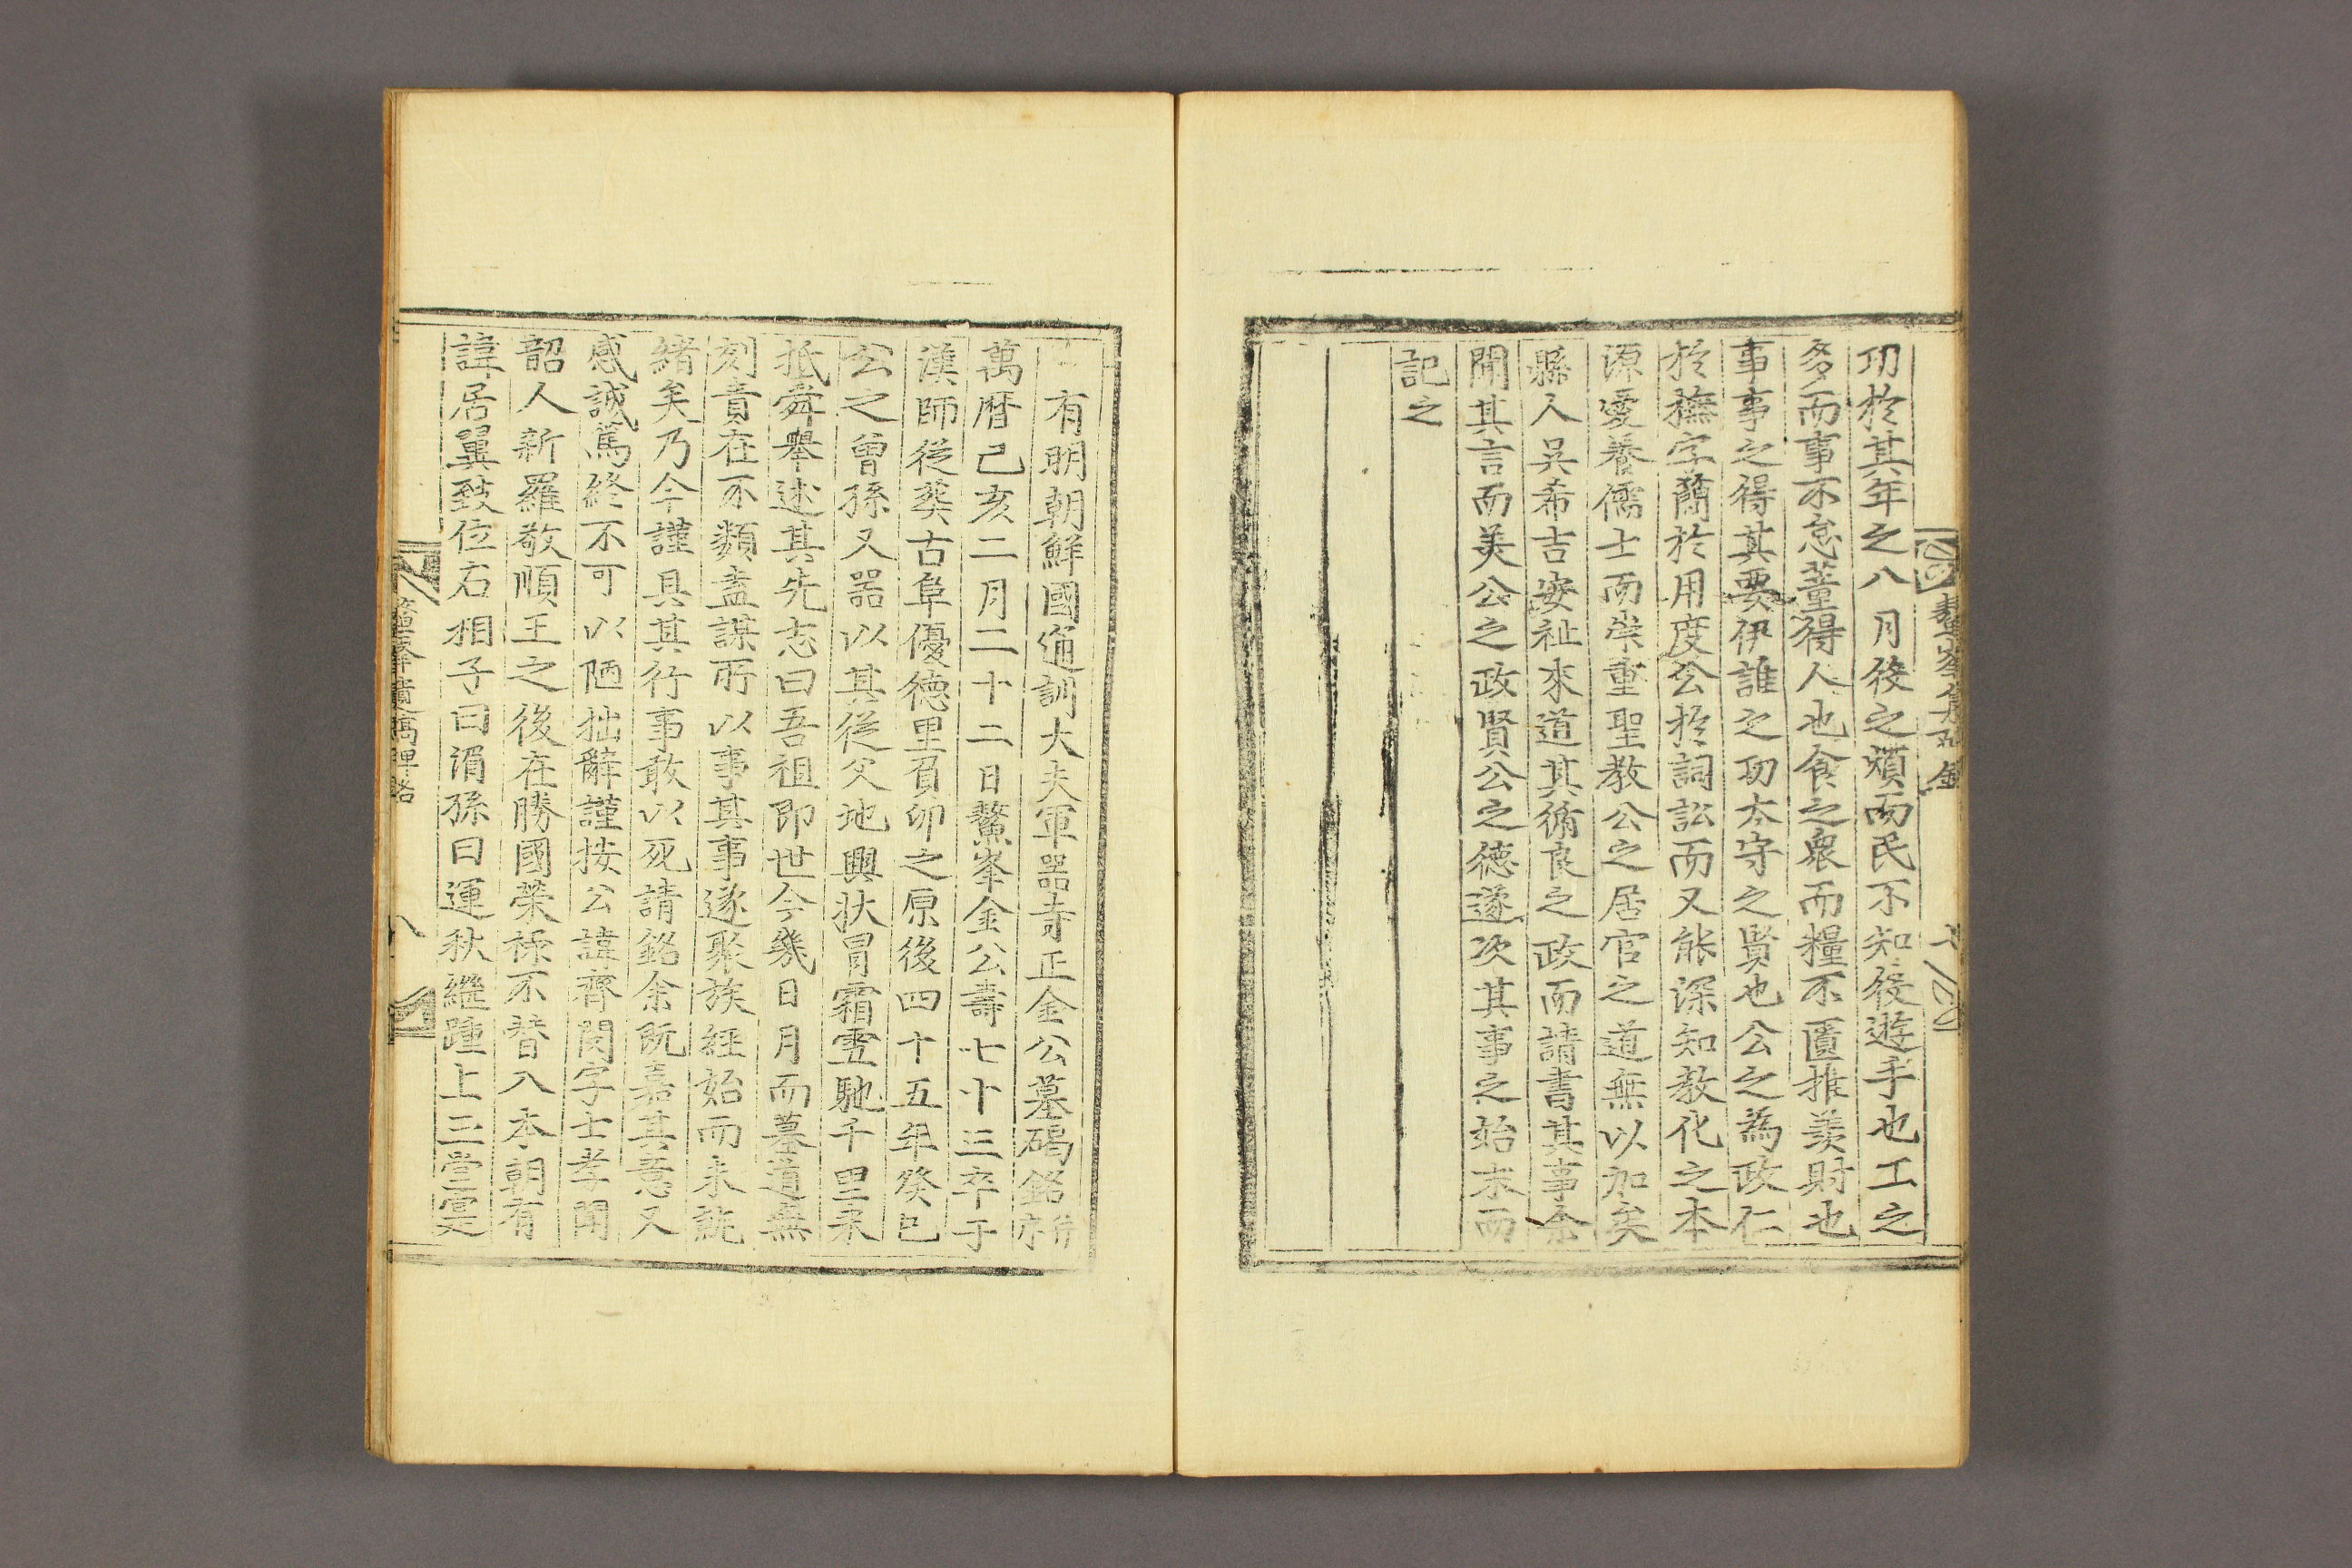 功於其年之八月役之煩而民不知役遊手也工之
多而事不怠董得人也食之衆而糧不匱推羡財也
事事之得其要伊誰之功太守之賢也公之為政仁
於撫字簡於用度公於詞訟而又能深知教化之本
源愛養儒士而崇重聖教公之居官之道無以加矣
縣人吳希吉安祉來道其循良之政而請書其事余
聞其言而美公之政賢公之德遂次其事之始末而
記之
有明朝鮮國通訓大夫軍器寺正金公墓碣銘并序
萬曆己亥二月二十二日鰲峯金公壽七十三卒于
漢師從葬古阜優德里負卯之原後四十五年癸巳
公之曾孫又器以其從父地興狀冒霜雪馳千里來
抵舜舉述其先志曰吾祖即世今幾日月而墓道無
刻責在不類盍謀所以事其事遂聚族經始而未就
緒矣乃今謹具其行事敢以死請銘余旣嘉其意又
感誠篤終不可以陋拙辭謹按公諱齊閔字士孝聞
韶人新羅敬順王之後在勝國榮祿不替入本朝有
諱居翼致位右相子曰涓孫曰運秋繼踵上三堂寔
鰲峯遺稿碑銘
八